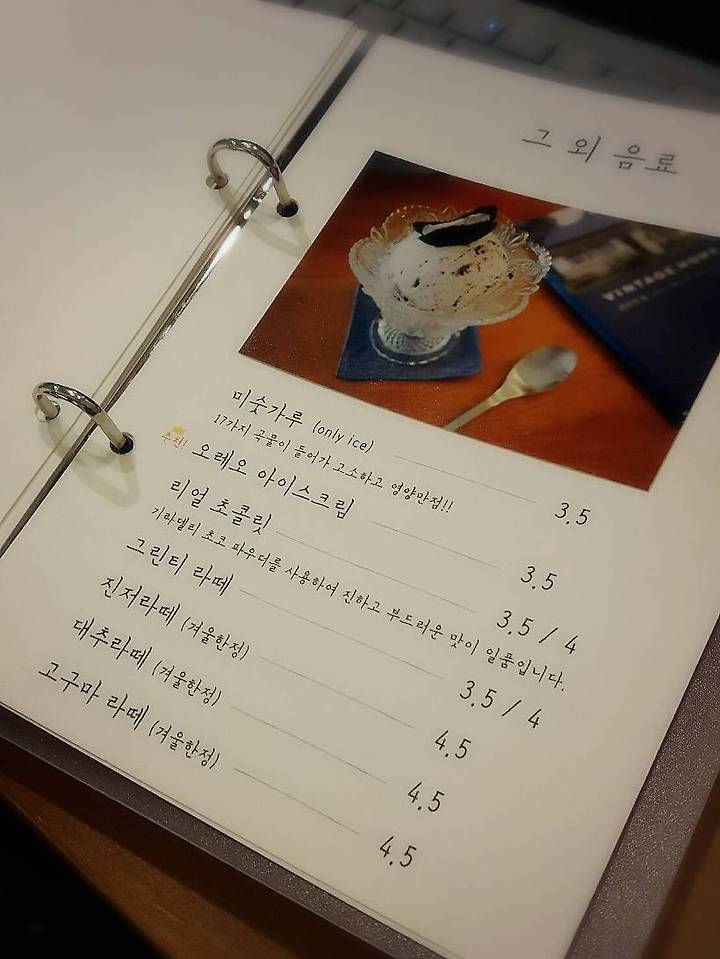 그 외 음료
VINTAGE HOME
미숫가루 (only ice) 3.5
17가지 곡물이 들어가 고소하고 영양만점!!
추천! 오레오 아이스크림 3.5
리얼 초콜릿 3.5 / 4
기라델리 초코 파우더를 사용하여 진하고 부드러운 맛이 일품입니다.
그린티 라떼 3.5 / 4
진저라떼 (겨울한정) 4.5
대추라떼 (겨울한정) 4.5
고구마 라떼 (겨울한정) 4.5